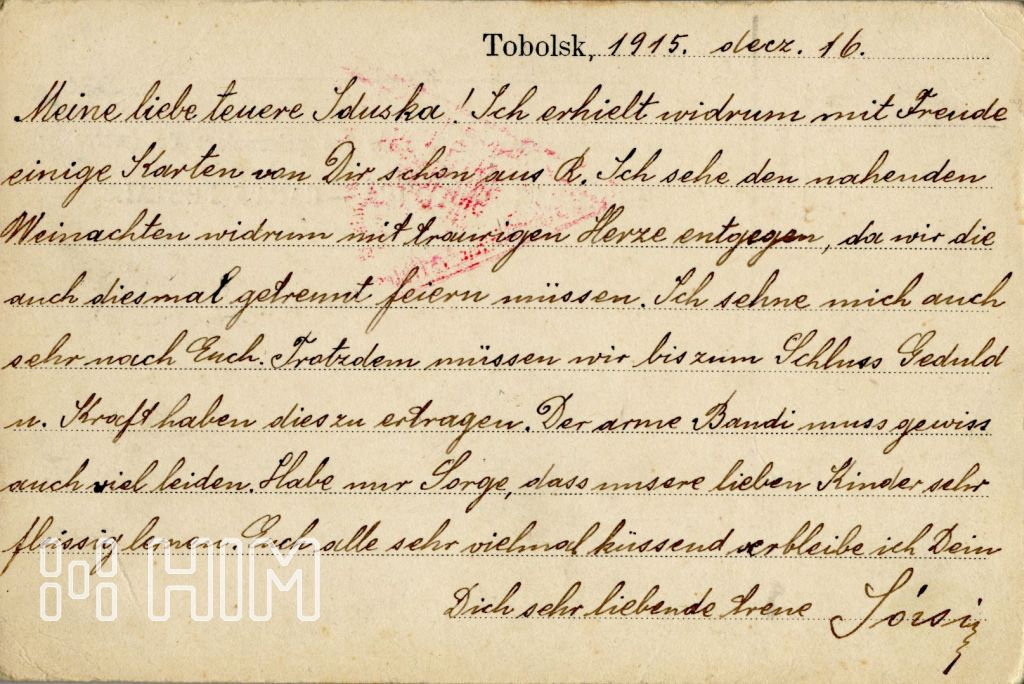 Tobolsk, 1915. decz. 16.
Meine liebe teuere Iduska! Ich erhielt widrum mit Freude
einige Karten von Dir schon aus R. Ich sehe den nahenden
Weinachten widrum mit traurigen Herze entgegen, da wir die
auch diesmal getrennt feiern müssen. Ich sehne mich auch
sehr nach Euch. Trotzdem müssen wir bis zum Schluss Geduld
u. Kraft haben dies zu ertragen. Der arme Bandi muss gewiss
auch viel leiden. Habe nur Sorge, dass unsere lieben Kinder sehr
fleissig lernen. Euch alle sehr vielmal küssend verbleibe ich Dein
Dich sehr liebende treue
HIM